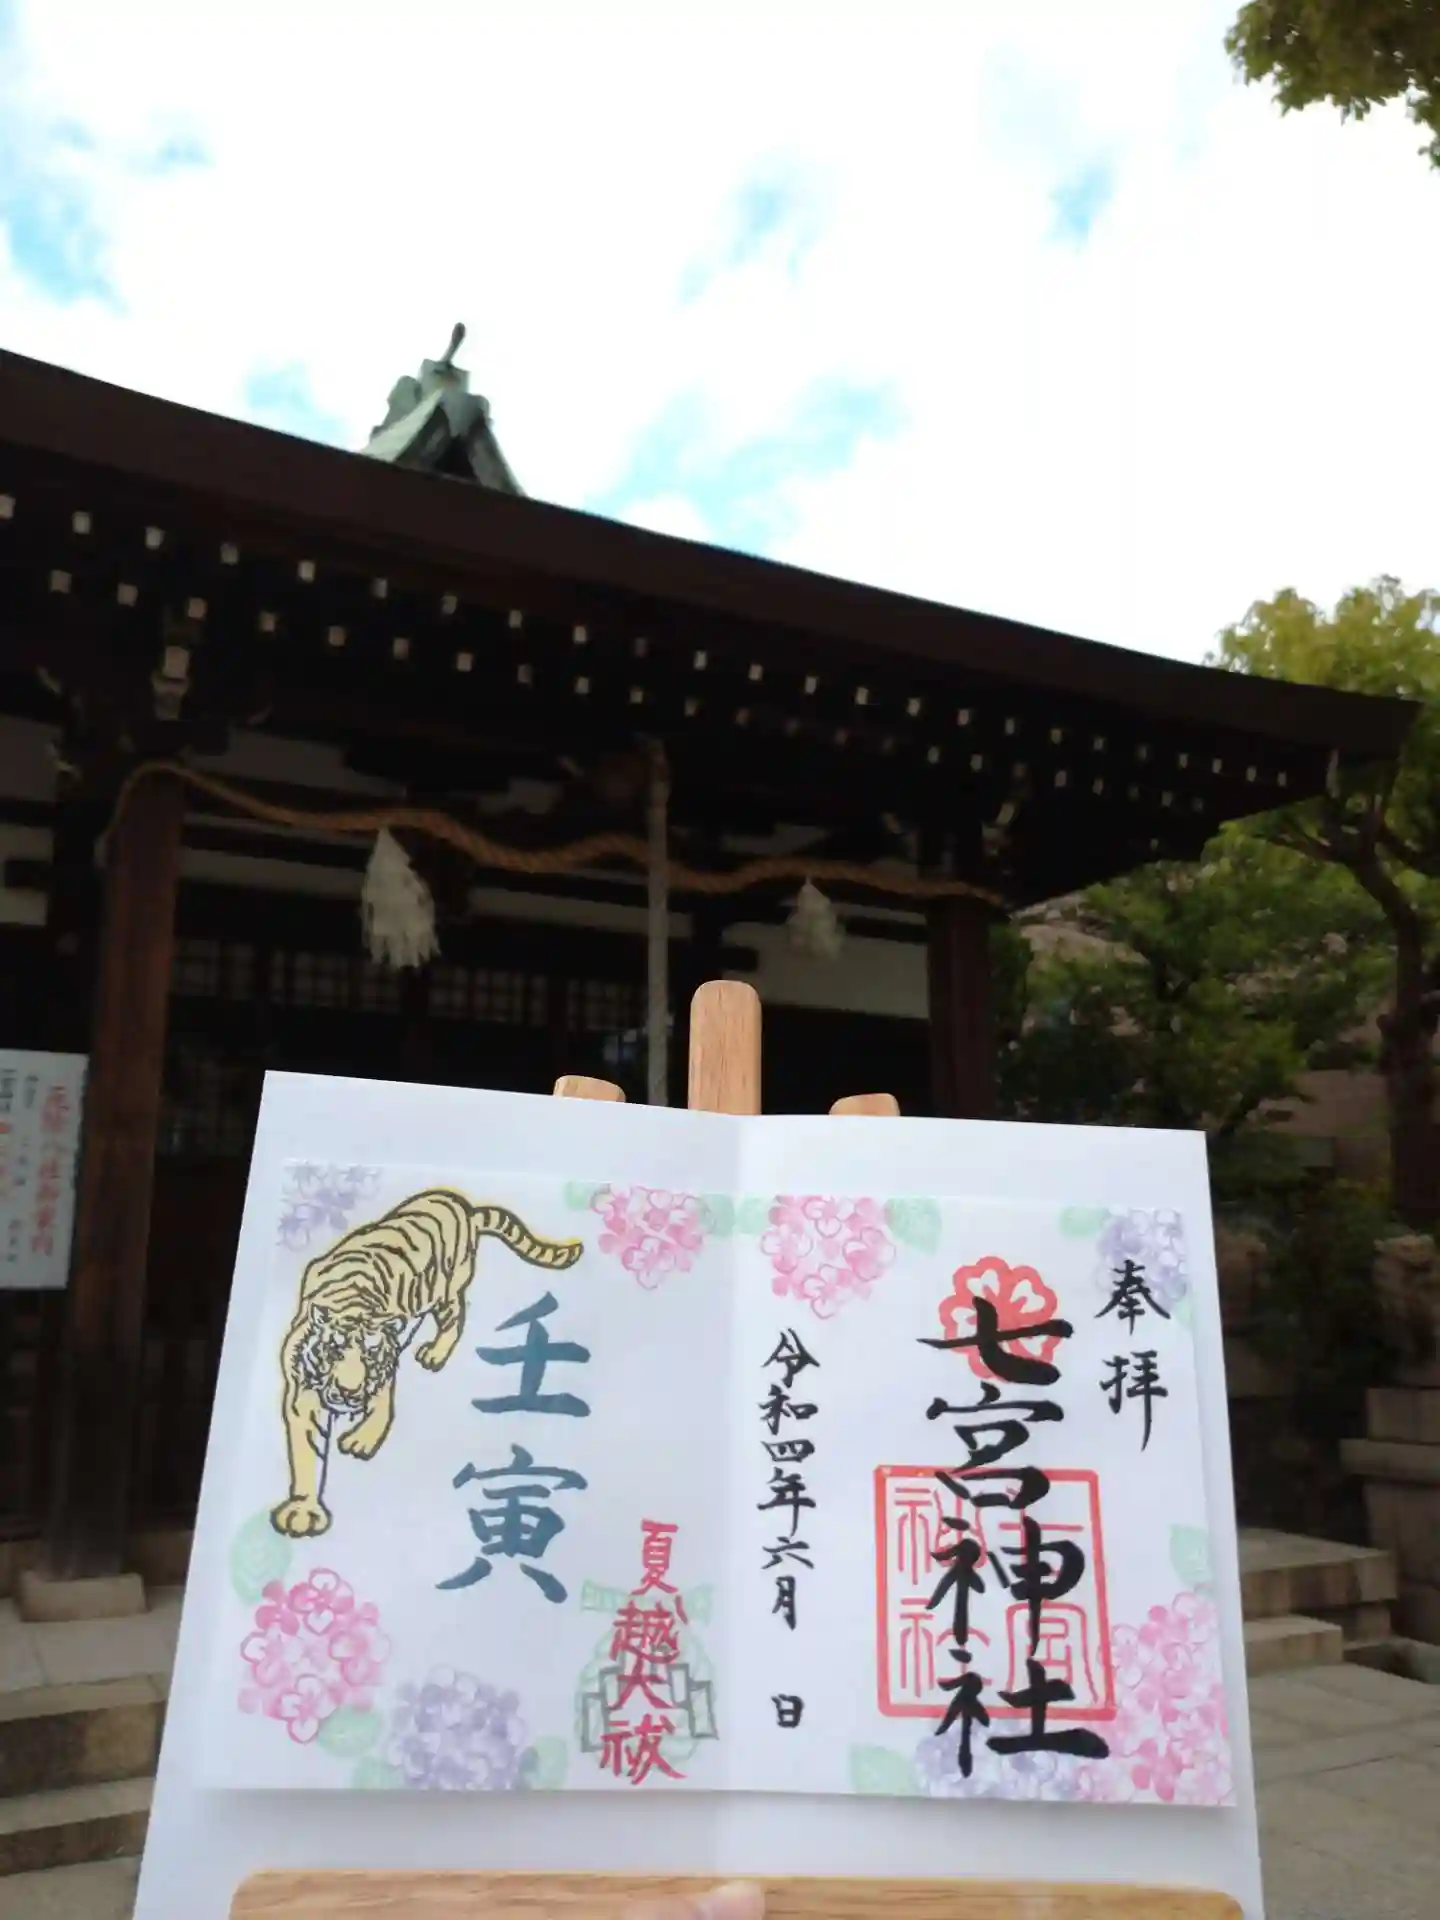 奉拝
七宮神社
七宮神社
令和四年六月 日
壬寅
夏越大祓